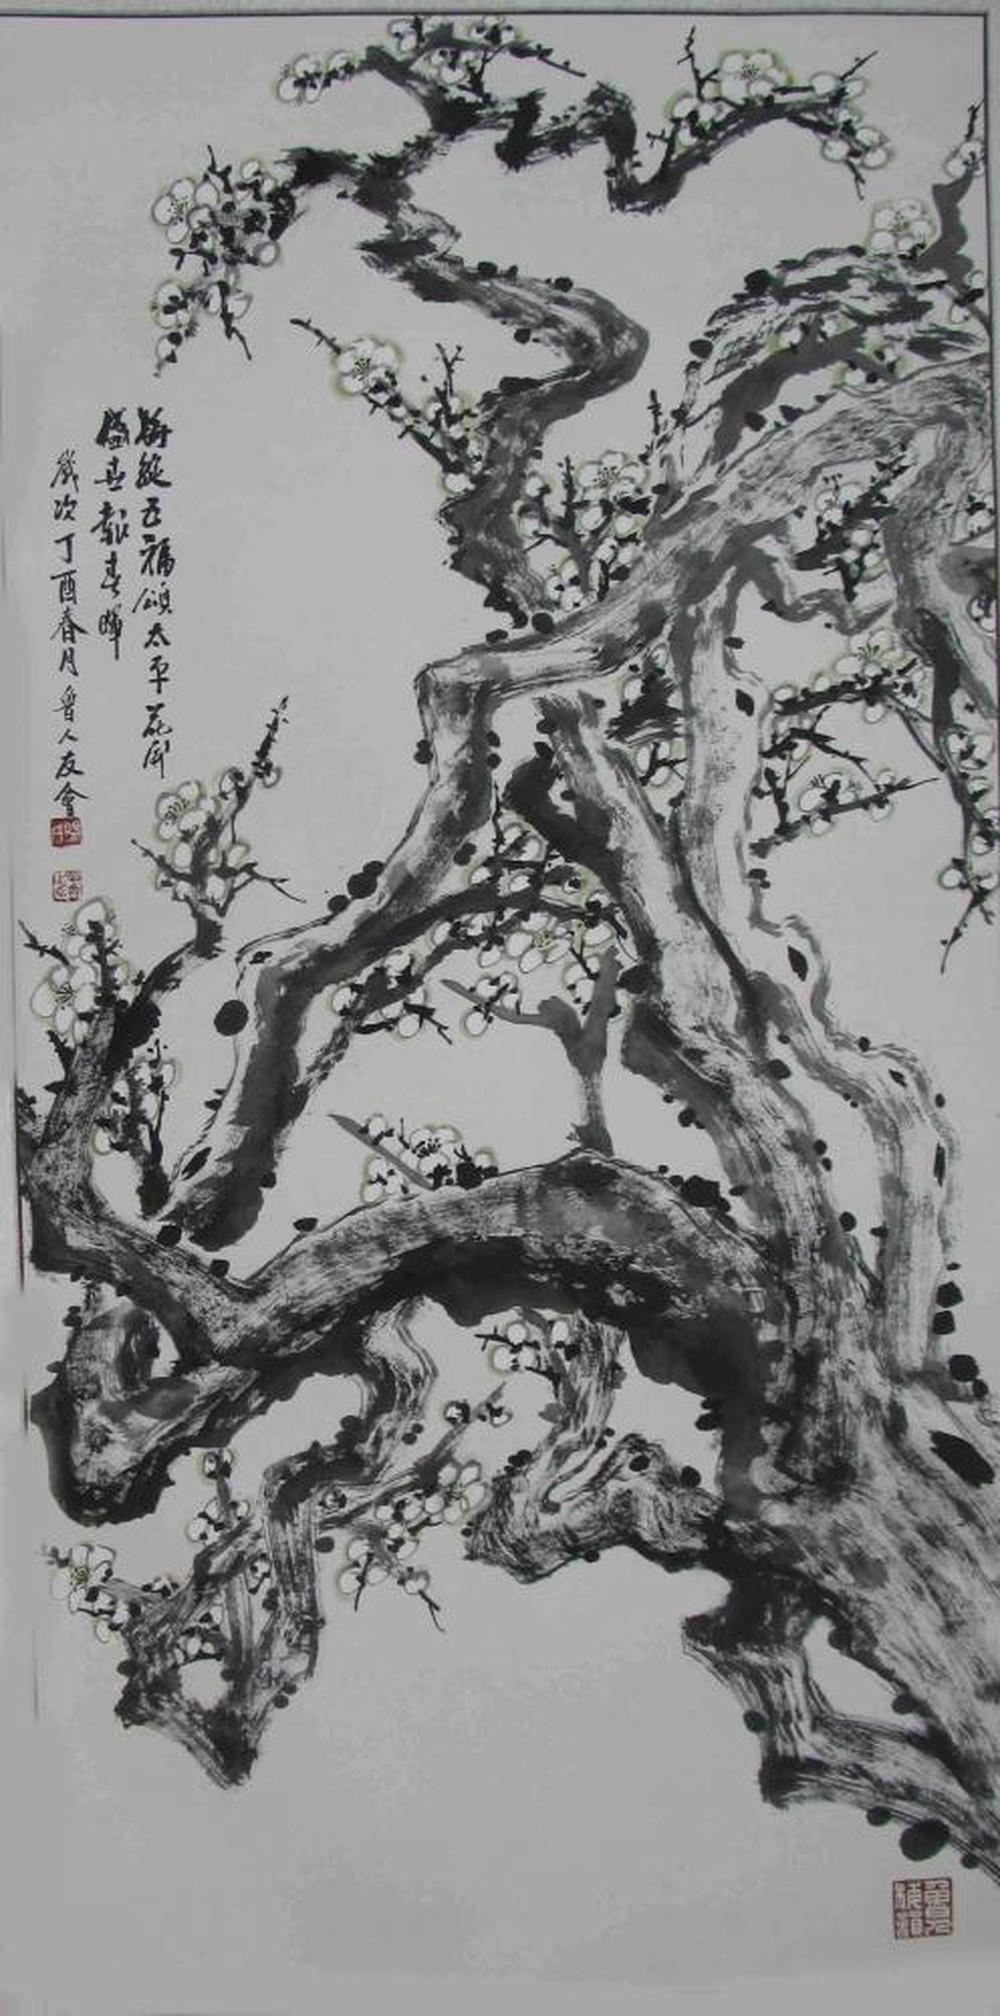 梅綻五福頌太平花開
盛世報春暉
歲次丁酉春月魯人友會